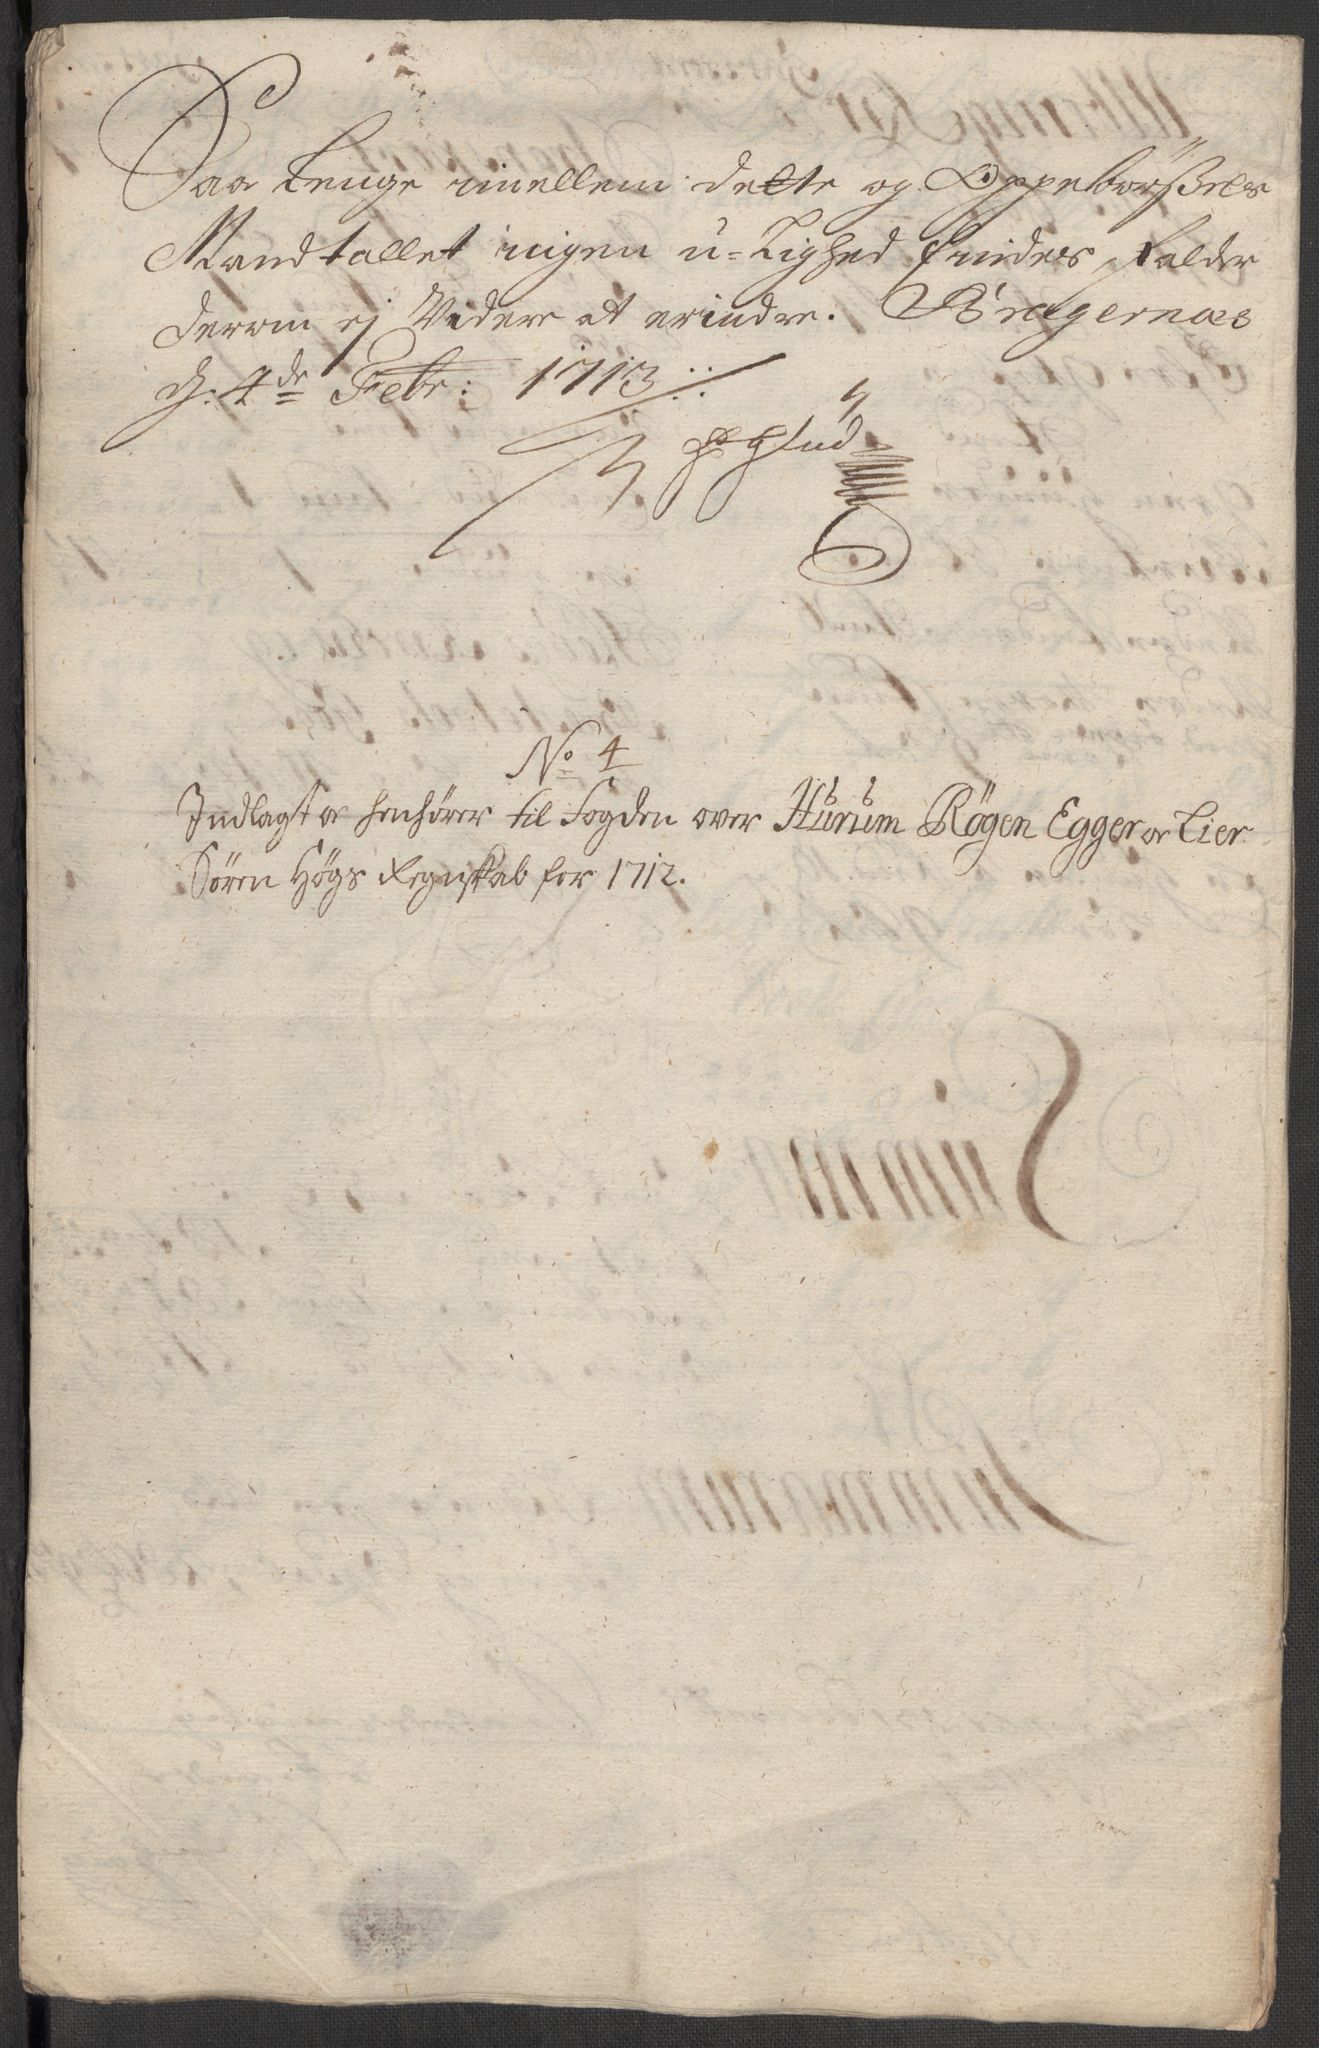 Saa lenge imellem dette og Oppebørßels
Mandtallet ingen u-Lighed findes, falder
derom ej Videre at erindre. Bragernæs
d. 4de Febr: 1713
Glud
No 4
Indlagt oc henhører til Fogden over Hurum Rögen Egger oc Lier
Sören Högs Regnskab for 1712.